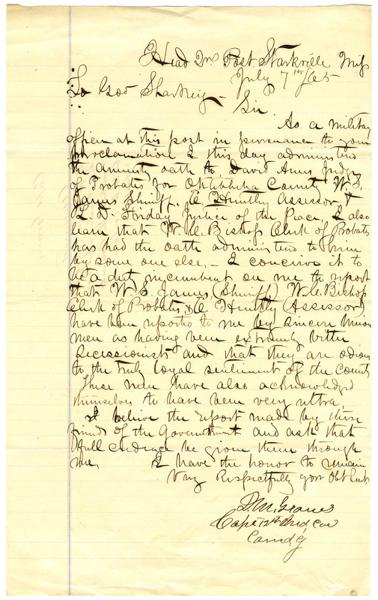 Head Qrs Post Starkville Miss
July 7th/65
To Gov Sharkey
Sir
As a military
officer at this post in pursuance to your
proclamation I this day administered
the amnesty oath to David Ames Judge
of Probate for Oktibbeha County W. S.
James Sheriff, C. Assessor &
Justice of the Peace, I also
learn that W. C. Bishop Clerk of Probate
has had the oath administered to him
by some one else. I conceive it to
be a duty incumbent on me to report
that W. S. James (Sheriff) W. C. Bishop
Clerk of Probate & C. (Assessor)
have been reported to me by sincere Union
men as having been extremely bitter
secessionists and that they are odious
to the truly loyal sentiment of the County
These men have also acknowledged
themselves to have been very ultra
I believe the report made by these
friends of the Government and ask that
full credence be given them through
me. I have the honor to remain
Very Respectfully your Obt Servt
Capt Ind Cav
Comdg